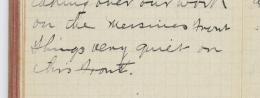 taking over our work
on the Messines front
things very quiet on
this front.